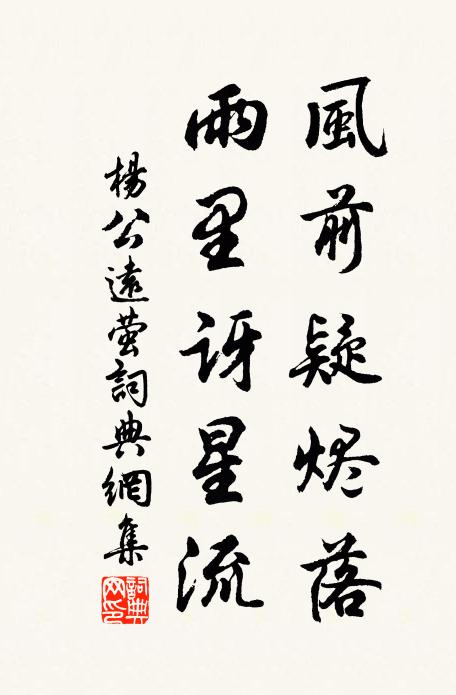 風前疑烬落
雨里讶星流
楊公遠萤詞典網集
詞典网印